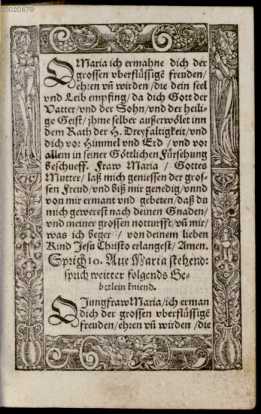 O Maria ich ermahne dich der
grossen vberflüssigē freuden/
ehren vñ wirden/die dein seel
vnd Leib empfing/da dich Gott der
Vatter/vnd der Sohn/vnd der heili-
ge Geist/jhme selber außerwölet inn
dem Rath der H. Dreyfaltigkeit/vnd
dich vor Himmel vnd Erd/vnd vor
allem in seiner Göttlichen Fürsehung
beschueff. Fraw Maria/Gottes
Mutter/laß mich geniessen der gros-
sen Freud/vnd biß mir genedig/vnnd
von mir ermant vnd gebeten/daß du
mich gewerest nach deinen Gnaden/
vnd meiner grossen notturfft/vñ mir
was ich beger/von deinem lieben
Kind Jesu Christo erlangest/Amen.
Sprich 10. Aue Maria stehend:
sprich weitter folgends Ge-
betlein kniend.
O Jungfraw Maria/ich erman
dich der grossen vberflüssigē
freuden/ehren vñ wirden/die